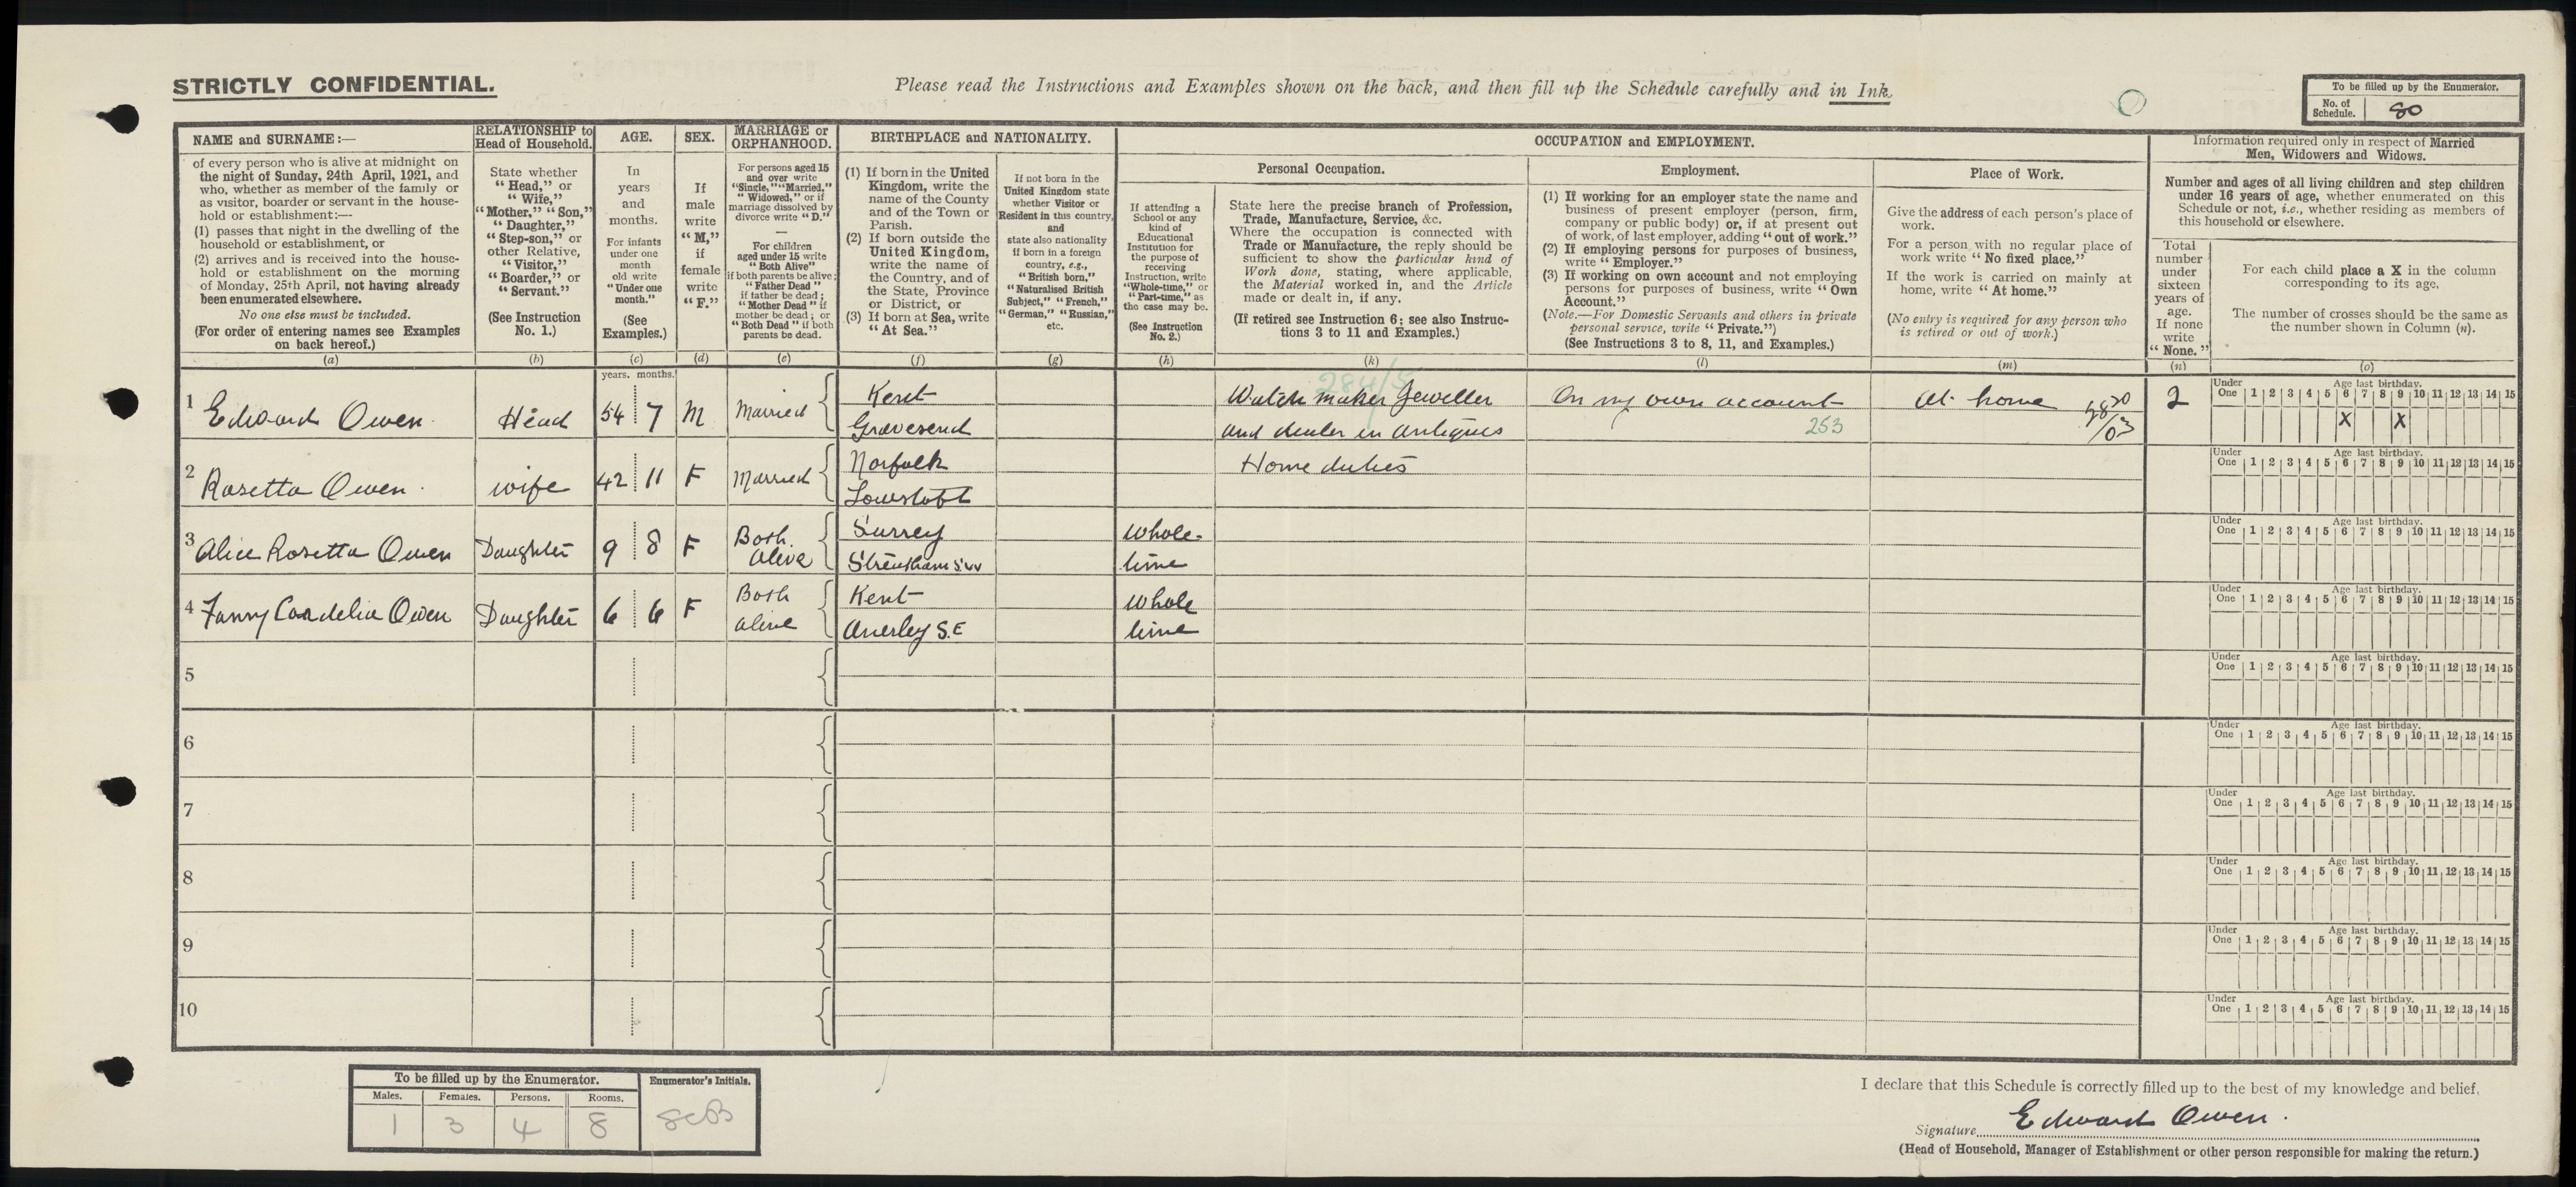 STRICTLY CONFIDENTIAL.
Please read the Instructions and Examples shown on the back, and then fill up the Schedule carefully and in Ink.
To be filled up by the Enumerator.
No. of Schedule. 80
NAME and SURNAME :—
of every person who is alive at midnight on
the night of Sunday, 24th April, 1921, and
who, whether as member of the family or
as visitor, boarder or servant in the house-
hold or establishment:—
(1) passes that night in the dwelling of the
household or establishment, or
(2) arrives and is received into the house-
hold or establishment on the morning
of Monday, 25th April, not having already
been enumerated elsewhere.
No one else must be included.
(For order of entering names see Examples
on back hereof.)
(a)
RELATIONSHIP to
Head of Household.
State whether
“Head,” or
“Wife,”
“Mother,” “Son,”
“Daughter,”
“Step-son,” or
other Relative,
“Visitor,”
“Boarder,” or
“Servant.”
(See Instruction
No. 1.)
(b)
AGE.
In
years
and
months.
For infants
under one
month
old write
“Under one
month.”
(See
Examples.)
(c)
SEX.
If
male
write
“M,”
if
female
write
“F.”
(d)
MARRIAGE or
ORPHANHOOD.
For persons aged 15
and over write
“Single,” “Married,”
“Widowed,” or if
marriage dissolved by
divorce write “D.”
—
For children
aged under 15 write
“Both Alive”
if both parents be alive;
“Father Dead”
if father be dead;
“Mother Dead” if
mother be dead; or
“Both Dead” if both
parents be dead.
(e)
BIRTHPLACE and NATIONALITY.
(1) If born in the United
Kingdom, write the
name of the County
and of the Town or
Parish.
(2) If born outside the
United Kingdom,
write the name of
the Country, and of
the State, Province
or District, or
(3) If born at Sea, write
“At Sea.”
(f)
If not born in the
United Kingdom state
whether Visitor or
Resident in this country,
and
state also nationality
if born in a foreign
country, e.g.,
“British born,”
“Naturalised British
Subject,” “French,”
“German,” “Russian,”
etc.
(g)
OCCUPATION and EMPLOYMENT.
Personal Occupation.
If attending a
School or any
kind of
Educational
Institution for
the purpose of
receiving
Instruction, write
“Whole-time,” or
“Part-time,” as
the case may be.
(See Instruction
No. 2.)
(h)
State here the precise branch of Profession,
Trade, Manufacture, Service, &c.
Where the occupation is connected with
Trade or Manufacture, the reply should be
sufficient to show the particular kind of
Work done, stating, where applicable,
the Material worked in, and the Article
made or dealt in, if any.
(If retired see Instruction 6; see also Instruc-
tions 3 to 11 and Examples.)
(k)
Employment.
(1) If working for an employer state the name and
business of present employer (person, firm,
company or public body) or, if at present out
of work, of last employer, adding “out of work.”
(2) If employing persons for purposes of business,
write “Employer.”
(3) If working on own account and not employing
persons for purposes of business, write “Own
Account.”
(Note.—For Domestic Servants and others in private
personal service, write “Private.”)
(See Instructions 3 to 8, 11, and Examples.)
(l)
Place of Work.
Give the address of each person's place of
work.
For a person with no regular place of
work write “No fixed place.”
If the work is carried on mainly at
home, write “At home.”
(No entry is required for any person who
is retired or out of work.)
(m)
Information required only in respect of Married
Men, Widowers and Widows.
Number and ages of all living children and step children
under 16 years of age, whether enumerated on this
Schedule or not, i.e., whether residing as members of
this household or elsewhere.
Total
number
under
sixteen
years of
age.
If none
write
“None.”
(n)
For each child place a X in the column
corresponding to its age.
The number of crosses should be the same as
the number shown in Column (n).
(o)
years. months.
284/5
1 Edward Owen Head 54 7 M Married Kent Watch maker Jeweller On my own account At home 2
Gravesend and dealer in antiques 253
Under One 1 2 3 4 5 6 7 8 9 10 11 12 13 14 15
Age last birthday.
X X
2 Rosetta Owen wife 42 11 F Married Norfolk Home duties
Lowestoft
Under One 1 2 3 4 5 6 7 8 9 10 11 12 13 14 15
Age last birthday.
3 Alice Rosetta Owen Daughter 9 8 F Both Alive Surrey Whole-
Streatham S.W time
Under One 1 2 3 4 5 6 7 8 9 10 11 12 13 14 15
Age last birthday.
4 Fanny Cordelia Owen Daughter 6 6 F Both alive Kent Whole
Anerley S.E time
Under One 1 2 3 4 5 6 7 8 9 10 11 12 13 14 15
Age last birthday.
5
Under One 1 2 3 4 5 6 7 8 9 10 11 12 13 14 15
Age last birthday.
6
Under One 1 2 3 4 5 6 7 8 9 10 11 12 13 14 15
Age last birthday.
7
Under One 1 2 3 4 5 6 7 8 9 10 11 12 13 14 15
Age last birthday.
8
Under One 1 2 3 4 5 6 7 8 9 10 11 12 13 14 15
Age last birthday.
9
Under One 1 2 3 4 5 6 7 8 9 10 11 12 13 14 15
Age last birthday.
10
Under One 1 2 3 4 5 6 7 8 9 10 11 12 13 14 15
Age last birthday.
To be filled up by the Enumerator.
Males. Females. Persons. Rooms.
1 3 4 8
Enumerator's Initials.
I declare that this Schedule is correctly filled up to the best of my knowledge and belief.
Signature Edward Owen.
(Head of Household, Manager of Establishment or other person responsible for making the return.)